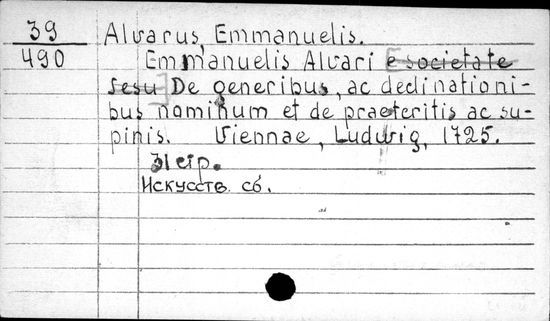 39
490
Alvarus, Emmanuelis.
Emmanuelis Alvari [e societate
Jesu] De generibus, ac declinationi-
bus nominum et de praeteritis ac su-
pinis. Viennae, Ludwig, 1725.
Искусств. сб.